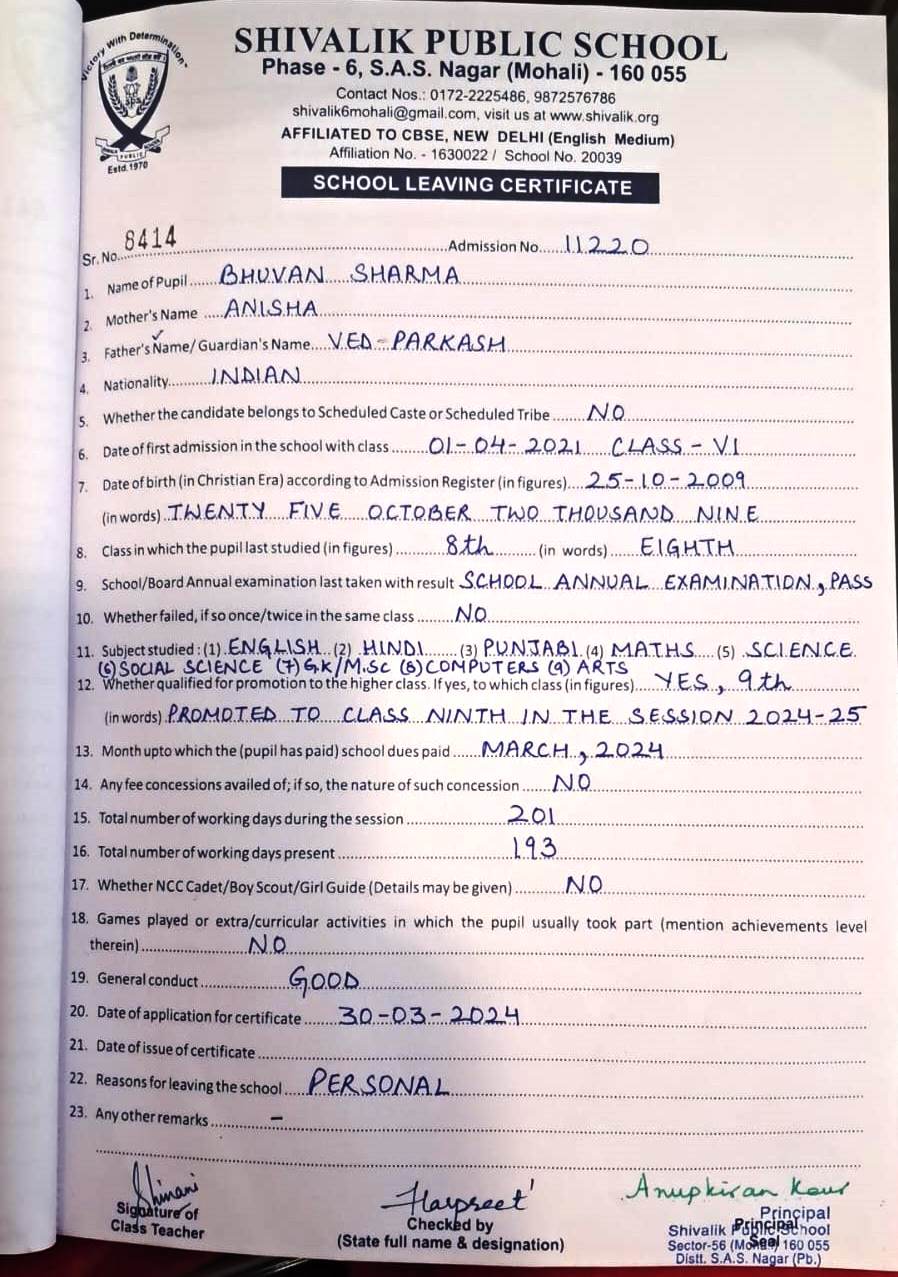 Victory With Determination
Estd. 1970
SHIVALIK PUBLIC SCHOOL
Phase - 6, S.A.S. Nagar (Mohali) - 160 055
Contact Nos.: 0172-2225486, 9872576786
shivalik6mohali@gmail.com, visit us at www.shivalik.org
AFFILIATED TO CBSE, NEW DELHI (English Medium)
Affiliation No. - 1630022 / School No. 20039
SCHOOL LEAVING CERTIFICATE
Sr. No. 8414 Admission No. 11220
1. Name of Pupil BHUVAN SHARMA
2. Mother's Name ANISHA
3. Father's Name/ Guardian's Name VED PARKASH
4. Nationality INDIAN
5. Whether the candidate belongs to Scheduled Caste or Scheduled Tribe NO
6. Date of first admission in the school with class 01-04-2021 CLASS - VI
7. Date of birth (in Christian Era) according to Admission Register (in figures) 25-10-2009
(in words) TWENTY FIVE OCTOBER TWO THOUSAND NINE
8. Class in which the pupil last studied (in figures) 8th (in words) EIGHTH
9. School/Board Annual examination last taken with result SCHOOL ANNUAL EXAMINATION, PASS
10. Whether failed, if so once/twice in the same class NO
11. Subject studied : (1) ENGLISH (2) HINDI (3) PUNJABI (4) MATHS (5) SCIENCE
(6) SOCIAL SCIENCE (7) G.K/M.SC (8) COMPUTERS (9) ARTS
12. Whether qualified for promotion to the higher class. If yes, to which class (in figures) YES, 9th
(in words) PROMOTED TO CLASS NINTH IN THE SESSION 2024-25
13. Month upto which the (pupil has paid) school dues paid MARCH, 2024
14. Any fee concessions availed of; if so, the nature of such concession NO
15. Total number of working days during the session 201
16. Total number of working days present 193
17. Whether NCC Cadet/Boy Scout/Girl Guide (Details may be given) NO
18. Games played or extra/curricular activities in which the pupil usually took part (mention achievements level
therein) NO
19. General conduct GOOD
20. Date of application for certificate 30-03-2024
21. Date of issue of certificate
22. Reasons for leaving the school PERSONAL
23. Any other remarks -
Shivani Harpreet Anupkiran Kaur
Signature of
Class Teacher
Checked by
(State full name & designation)
Principal
Seal
Principal
Shivalik Public School
Sector-56 (Mohali) 160 055
Distt. S.A.S. Nagar (Pb.)